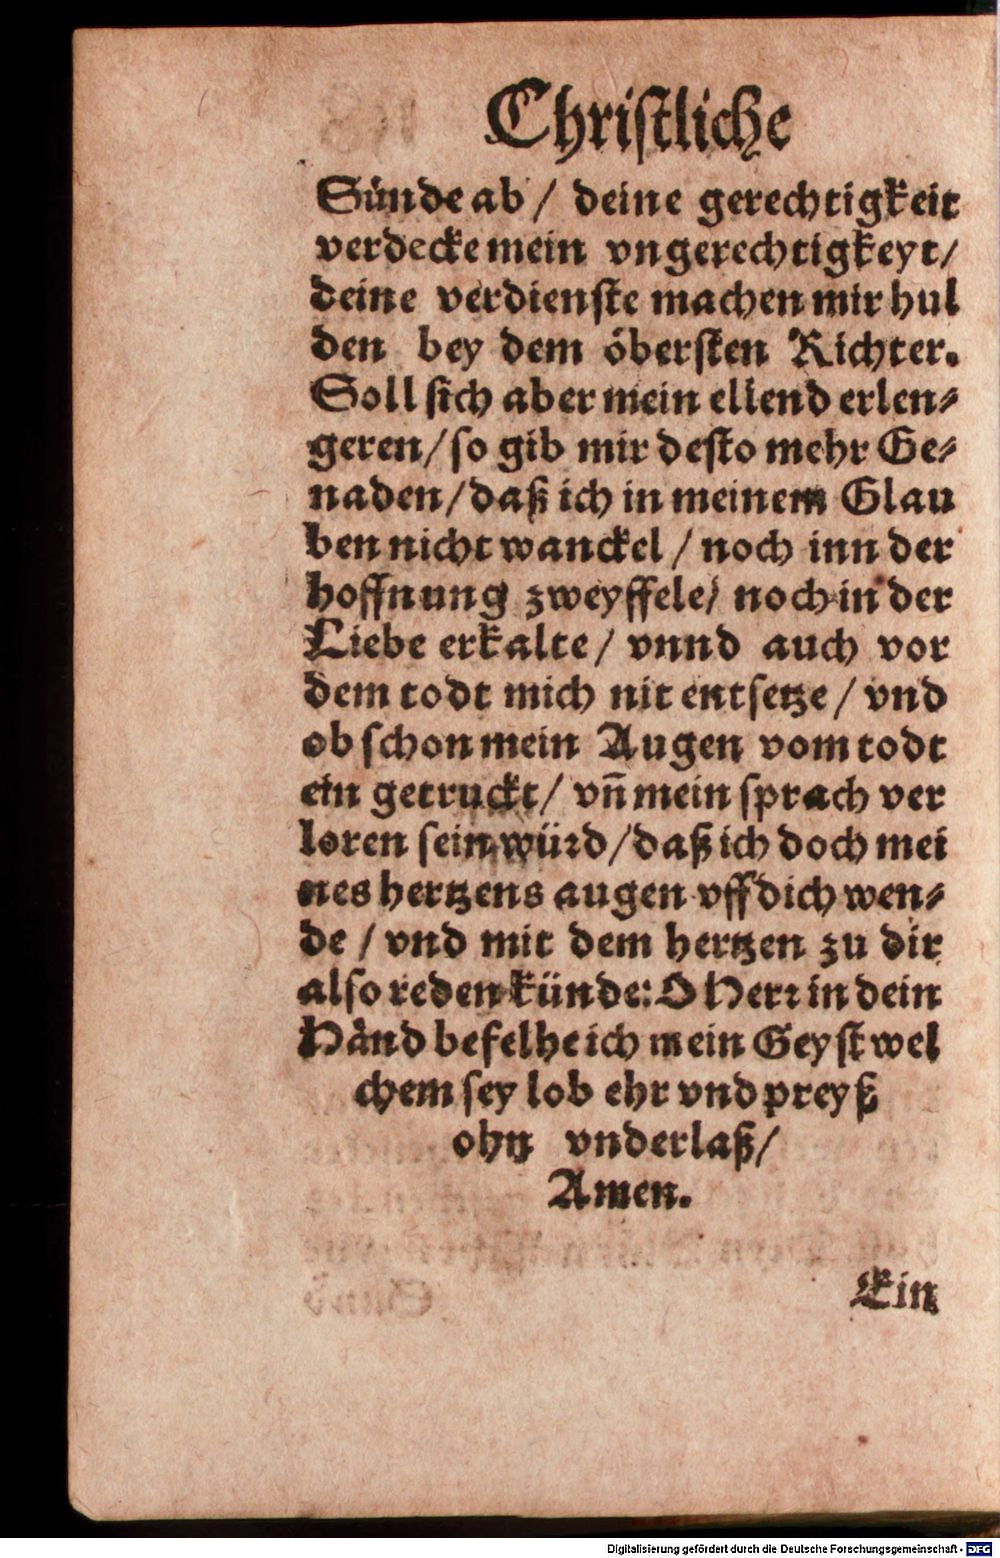 Christliche
Sünde ab / deine gerechtigkeit
verdecke mein vngerechtigkeyt /
deine verdienste machen mir hul
den bey dem öbersten Richter.
Soll sich aber mein ellend erlen-
geren / so gib mir desto mehr Ge-
naden / daß ich in meinem Glau
ben nicht wanckel / noch inn der
hoffnung zweyffele / noch in der
Liebe erkalte / vnnd auch vor
dem todt mich nit entsetze / vnd
ob schon mein Augen vom todt
ein getruckt / vñ mein sprach ver
loren sein würd / daß ich doch mei
nes hertzens augen vff dich wen-
de / vnd mit dem hertzen zu dir
also reden künde: O Herr in dein
Händ befelhe ich mein Geyst wel
chem sey lob ehr vnd preyß
ohn vnderlaß /
Amen.
Ein
Digitalisierung gefördert durch die Deutsche Forschungsgemeinschaft - DFG